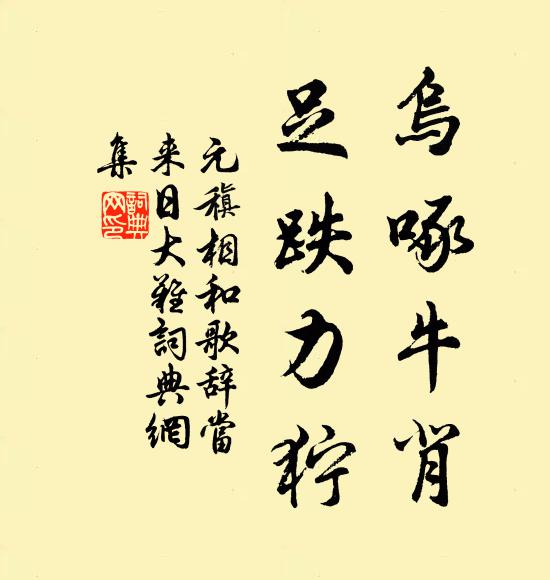 烏啄牛背
足跌力狞
元稹相和歌辞當
来日大難詞典網
集
詞典
网印